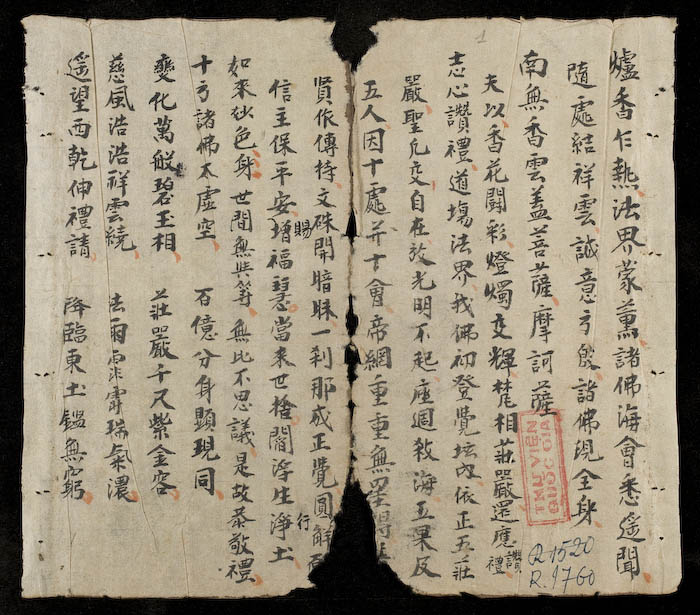 1
爐香乍熱法界蒙薰諸佛海會悉遥聞
隨處結祥雲誠意方殷諸佛現全身
南無香雲盖菩薩摩訶薩
夫以香花闘彩燈燭交輝梵相莊嚴還應讃禮
志心讃禮道塲法界我佛初登覺坛内依正五莊
嚴聖凡交自在放光明不起座週教海五果反
五人因十處并十會帝網重重無
賢依傳持文殊開暗昧一刹那成正覺圓解行
信主保平安增福慧當来世捨閻浮生淨土
賜
如来妙色身世間無與等無比不思議是故恭敬禮
十方諸佛太虚空 百億分身顕現同
變化萬般碧玉相 莊嚴千尺紫金容
慈風浩浩祥雲繞 法雨霏霏瑞氣濃
遥望西乾伸禮請 降臨東土鑑無窮
THƯ VIỆN
QUỐC GIA
R.1520
R.1760